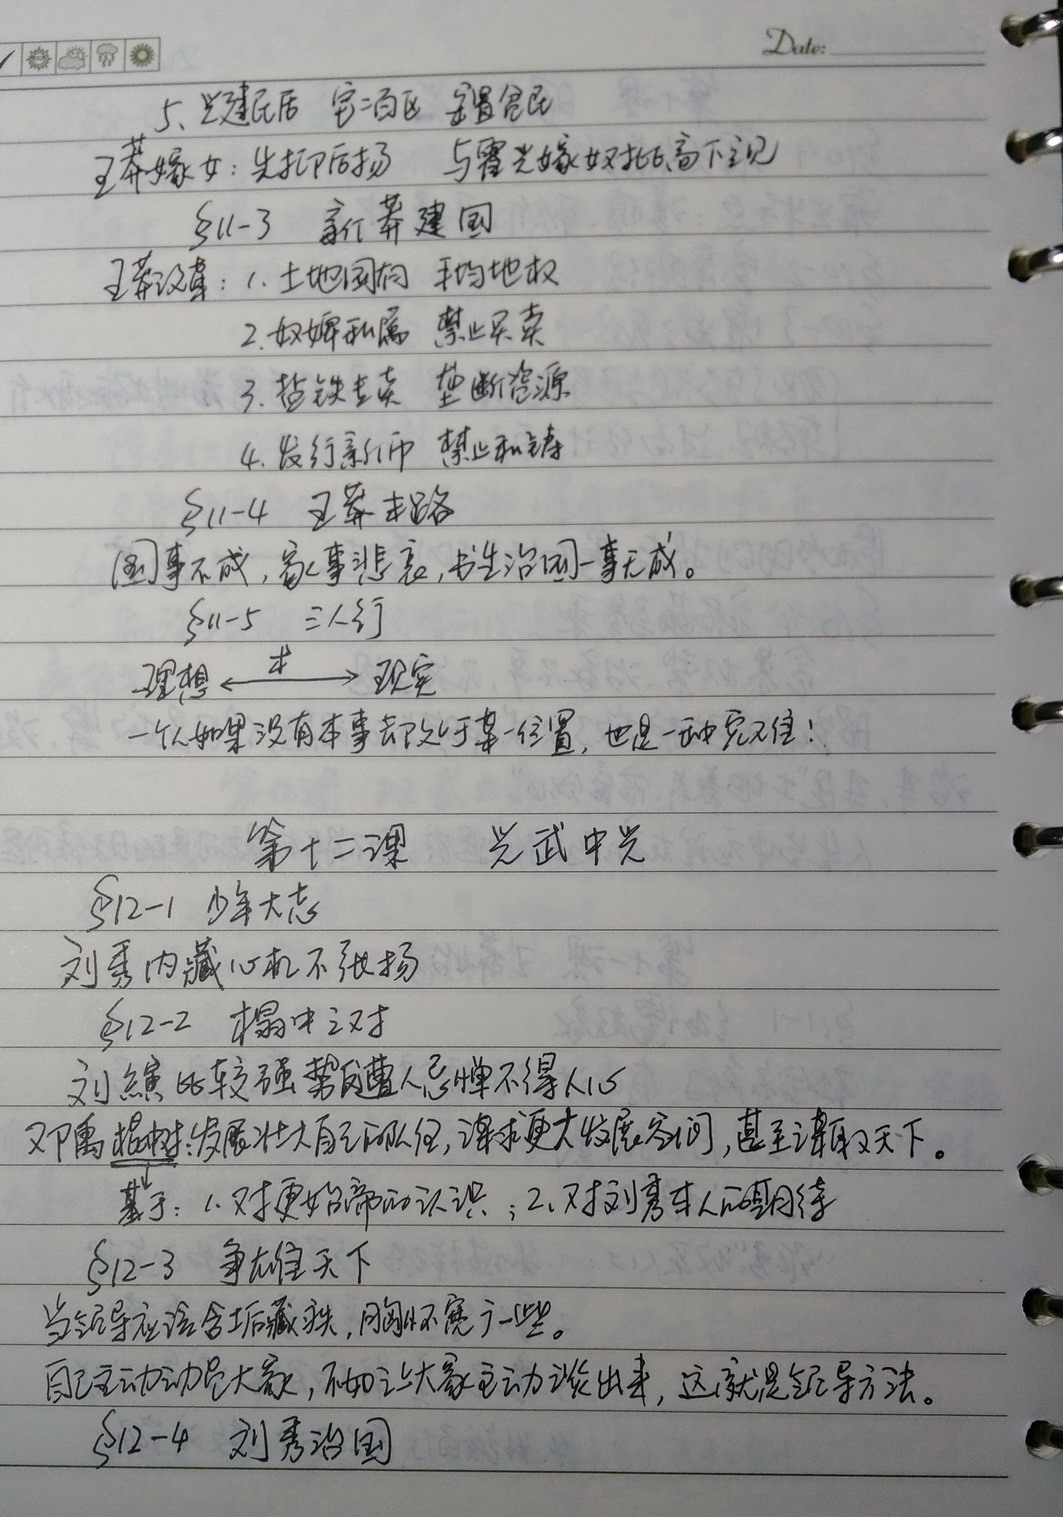 Date:
5、兴建民居 宅二百区 安置官民
王莽嫁女：先抑后扬 与霍光嫁女对比高下立见
§11-3 新莽建国
王莽改革：1. 土地国有 平均地权
2. 奴婢私属 禁止买卖
3. 盐铁专卖 垄断资源
4. 发行新币 禁止私铸
§11-4 王莽末路
国事不成，家事悲哀，书生治国一事无成。
§11-5 三人行
理想 ←求→ 现实
一个人如果没有本事却处于某一位置，也是一种靠不住！
第十二课 光武中兴
§12-1 少年大志
刘秀内藏心机不张扬
§12-2 榻中之对
刘縯比较强势遭人忌惮不得人心
邓禹提醒：发展壮大自己的队伍，谋求更大发展空间，甚至谋取天下。
基于：1. 对更始帝的认识；2. 对刘秀本人的期待
§12-3 争雄天下
当领导应该含垢藏疾，胸怀宽广一些。
自己主动动员大家，不如让大家主动说出来，这就是领导方法。
§12-4 刘秀治国